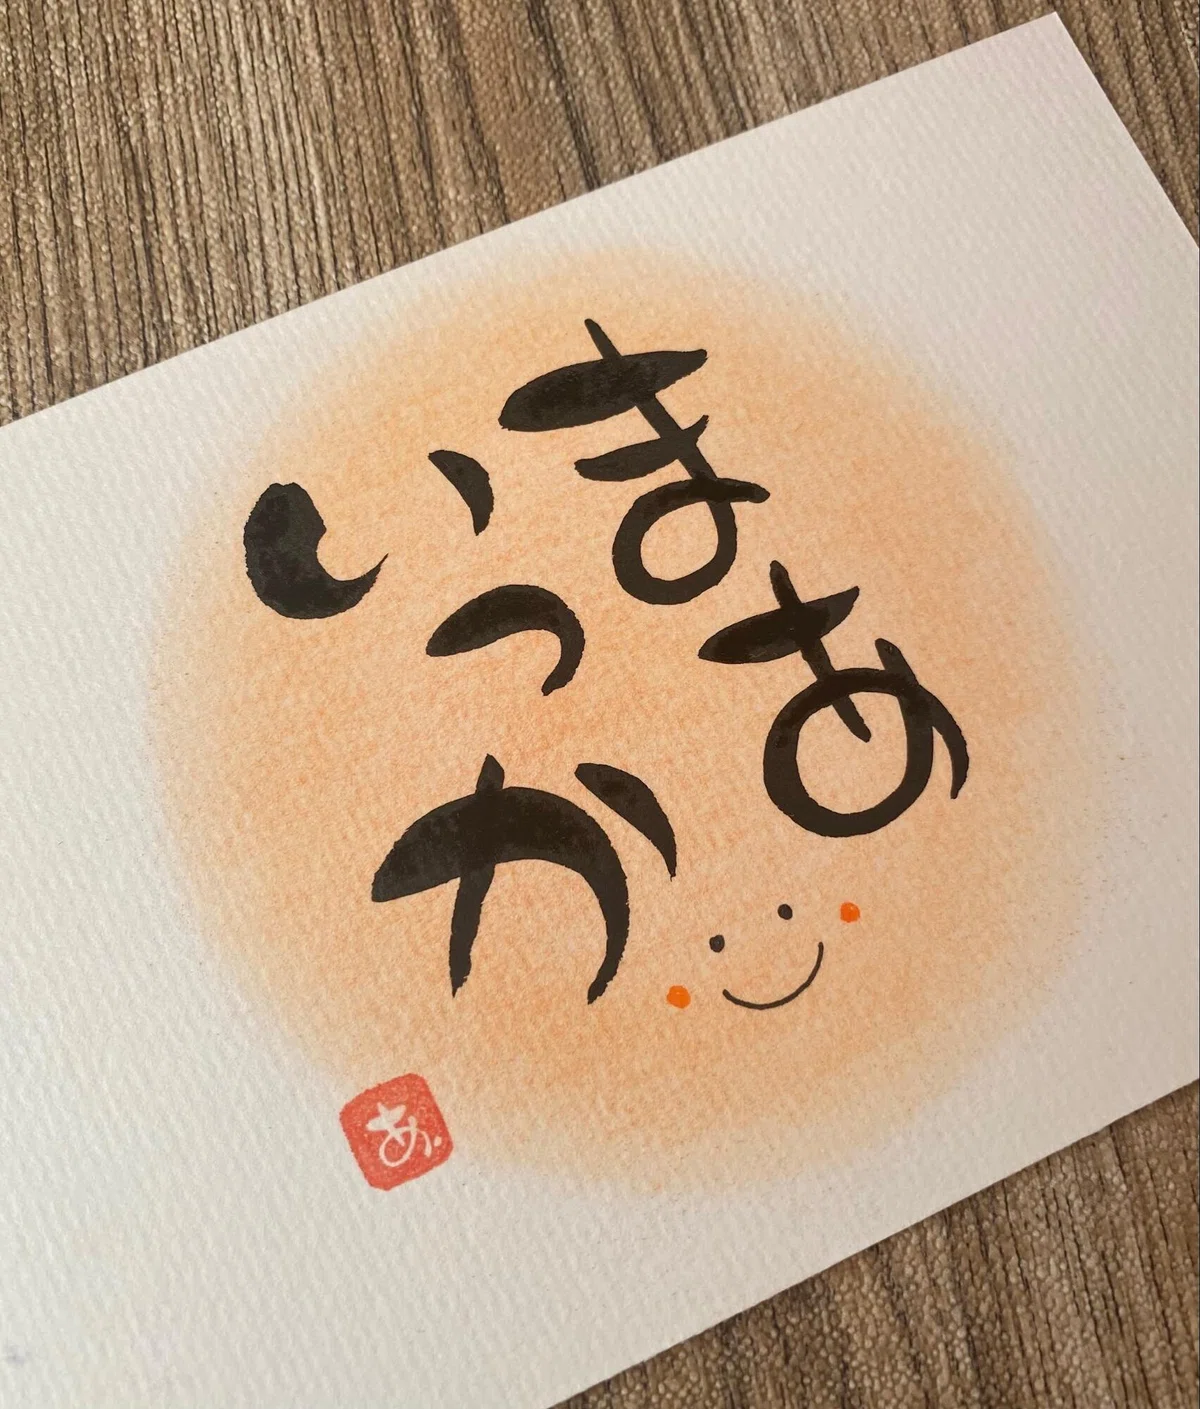 まあ
いっか
あ